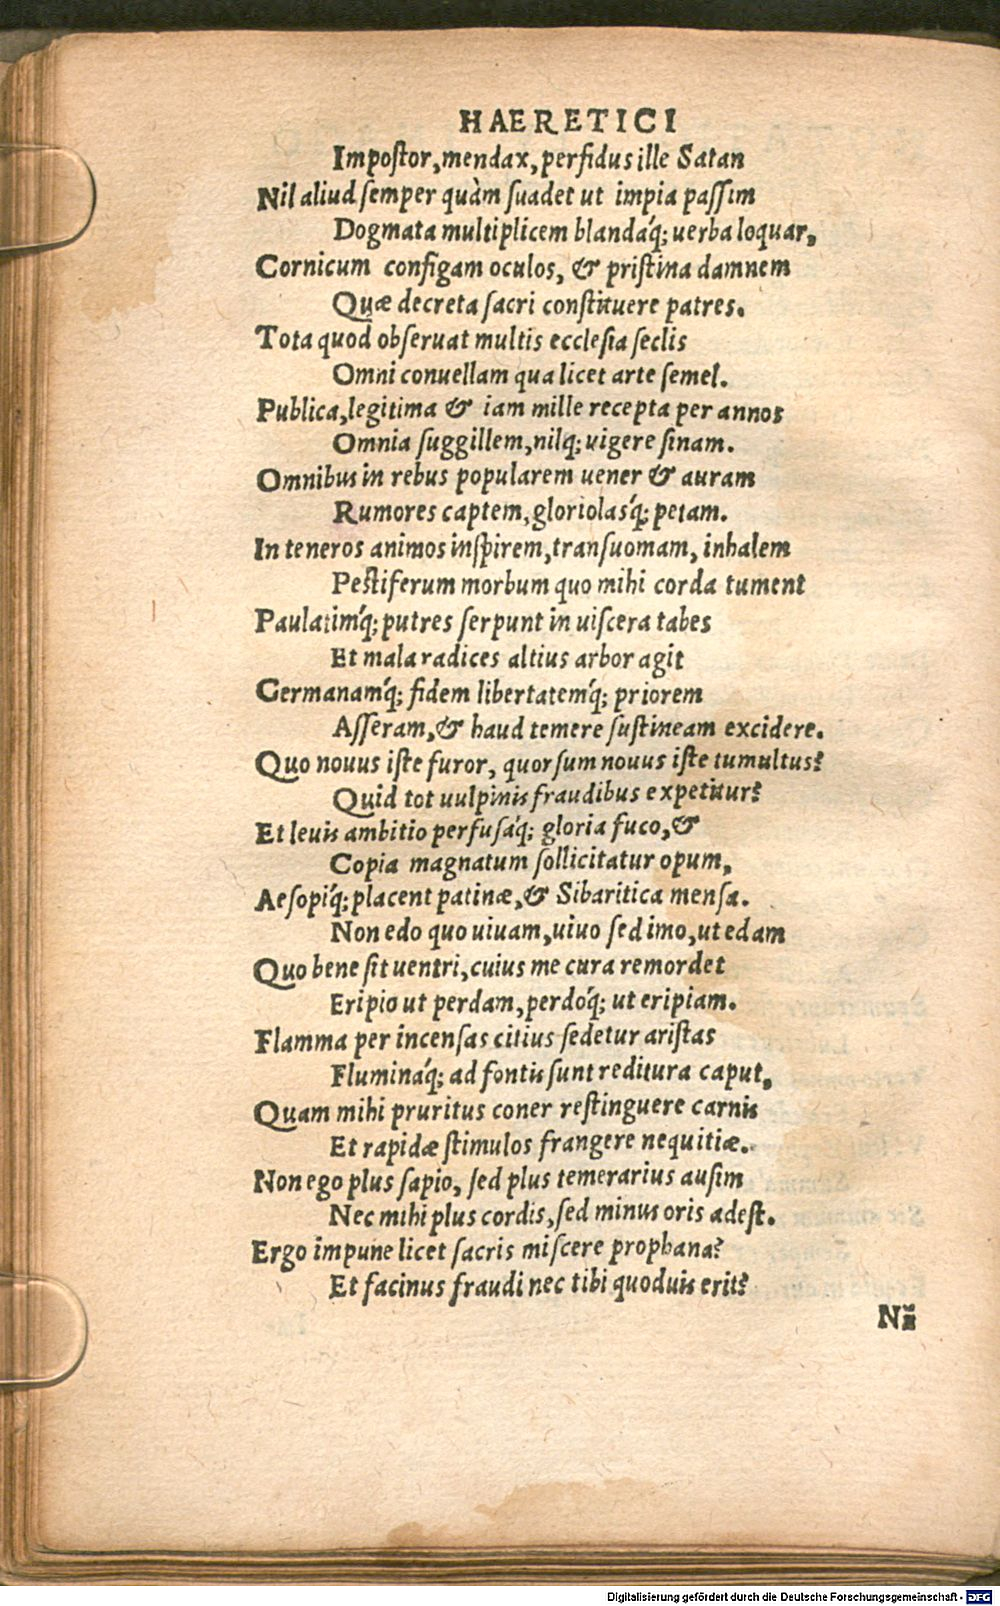 HAERETICI
Impoſtor, mendax, perfidus ille Satan
Nil aliud ſemper quàm ſuadet ut impia paſſim
Dogmata multiplicem blandáq; uerba loquar,
Cornicum configam oculos, & priſtina damnem
Quæ decreta ſacri conſtituere patres.
Tota quod obſeruat multis eccleſia ſeclis
Omni conuellam qua licet arte ſemel.
Publica, legitima & iam mille recepta per annos
Omnia ſuggillem, nilq; uigere ſinam.
Omnibus in rebus popularem uener & auram
Rumores captem, gloriolasq́; petam.
In teneros animos inſpirem, transuomam, inhalem
Peſtiferum morbum quo mihi corda tument
Paulatimq́; putres ſerpunt in uiſcera tabes
Et mala radices altius arbor agit
Germanamq́; fidem libertatemq́; priorem
Aſſeram, & haud temere ſuſtineam excidere.
Quo nouus iſte furor, quorſum nouus iſte tumultus?
Quid tot uulpinis fraudibus expetitur?
Et leuis ambitio perfuſáq; gloria fuco, &
Copia magnatum ſollicitatur opum,
Aeſopiq́; placent patinæ, & Sibaritica menſa.
Non edo quo uiuam, uiuo ſed imo, ut edam
Quo bene ſit uentri, cuius me cura remordet
Eripio ut perdam, perdóq; ut eripiam.
Flamma per incenſas citius ſedetur ariſtas
Flumináq; ad fontis ſunt reditura caput,
Quam mihi pruritus coner reſtinguere carnis
Et rapidæ ſtimulos frangere nequitiæ.
Non ego plus ſapio, ſed plus temerarius auſim
Nec mihi plus cordis, ſed minus oris adeſt.
Ergo impune licet ſacris miſcere prophana?
Et facinus fraudi nec tibi quoduis erit?
Digitalisierung gefördert durch die Deutsche Forschungsgemeinschaft - DFG